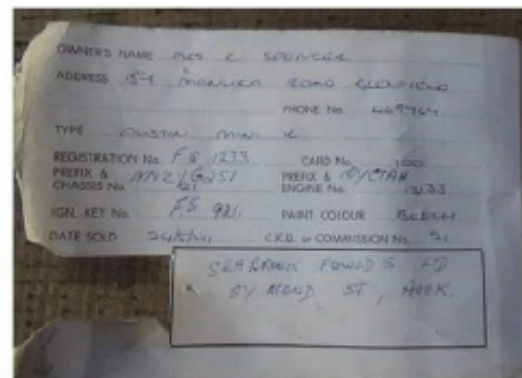 OWNER'S NAME MRS C SPENCER
ADDRESS 154 MANUKA ROAD GLENFIELD
PHONE No.
TYPE AUSTIN MINI K
REGISTRATION No. FG 1233 CARD No. 100
PREFIX & CHASSIS No. PREFIX & ENGINE No. 13133
IGN. KEY No. FS 921. PAINT COLOUR
DATE SOLD C.K.D. or COMMISSION No. 71
SEABROOK FOWLDS LTD
SYMOND ST, AUCK.